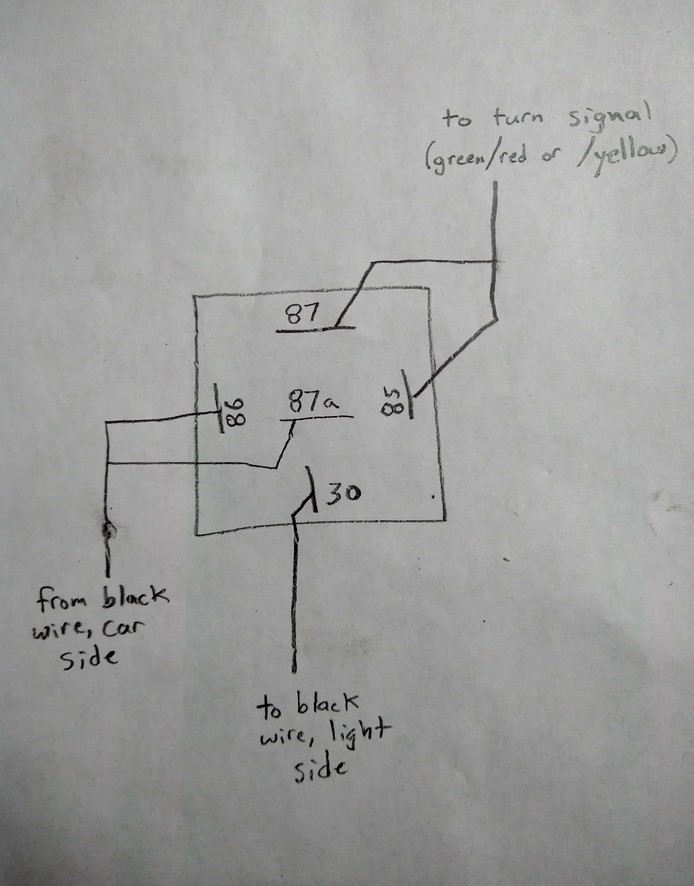 to turn signal
(green/red or /yellow)
87
86
87a
85
30
from black
wire, car
side
to black
wire, light
side